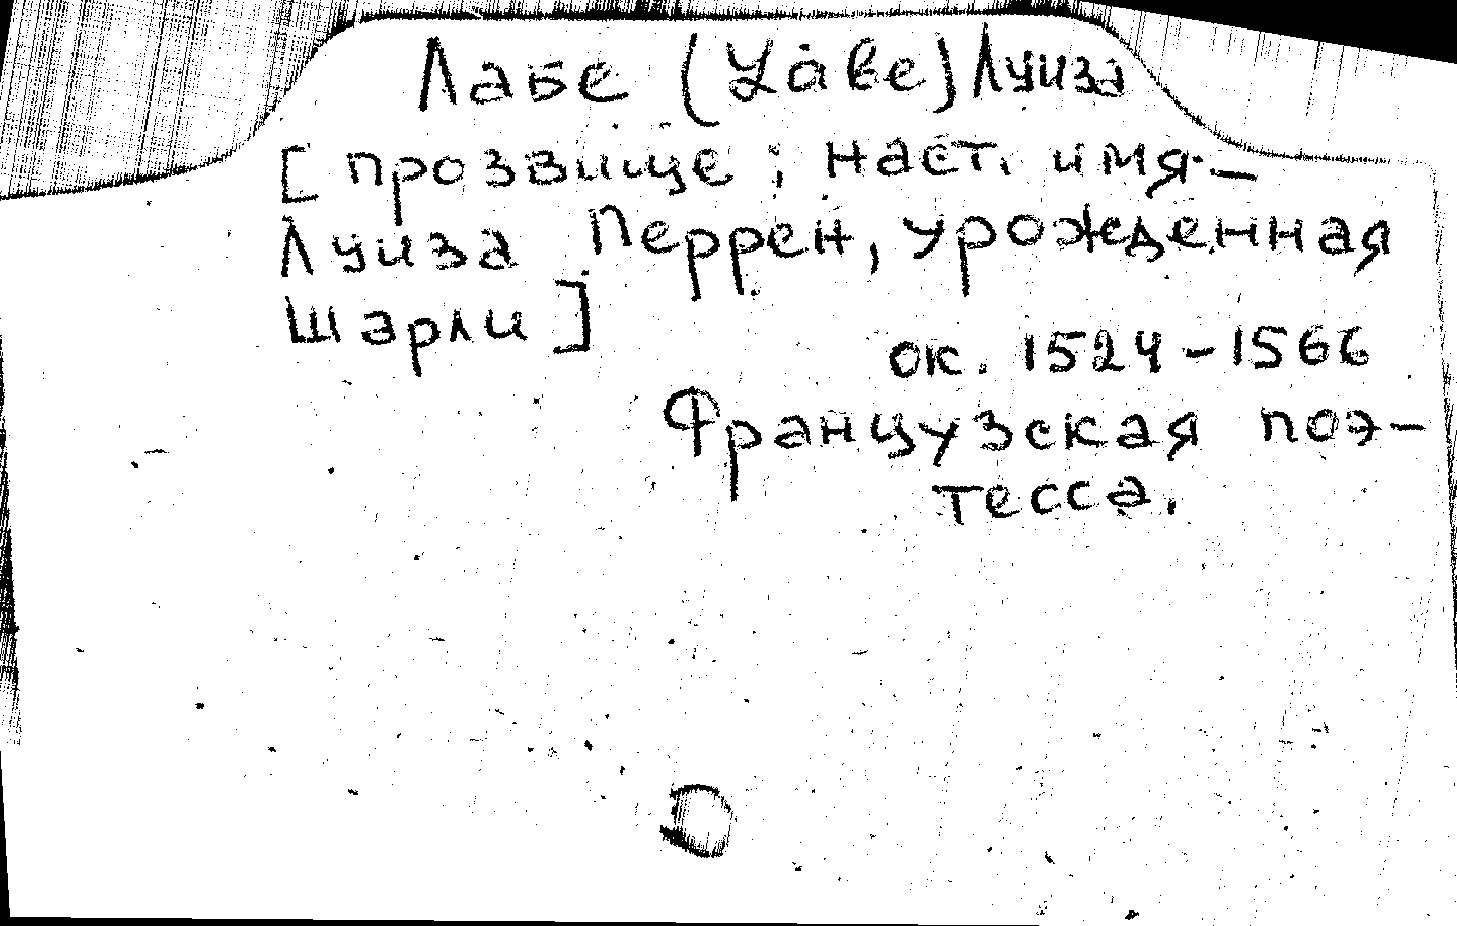 Лабе (Labe) Луиза
[прозвище; наст. имя -
Луиза Перрен, урожденная
Шарли]
ок. 1524-1566
Французская поэ-
тесса.